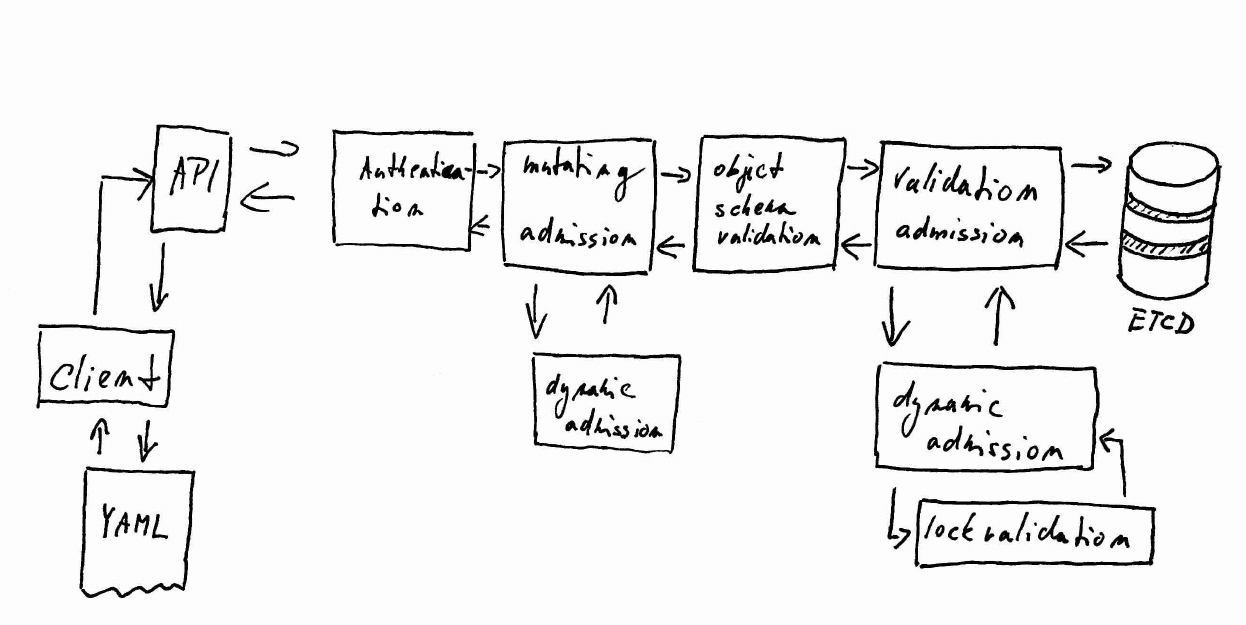 API
Authentica-
tion
mutating
admission
object
schema
validation
validation
admission
ETCD
Client
dynamic
admission
dynamic
admission
YAML
lock validation